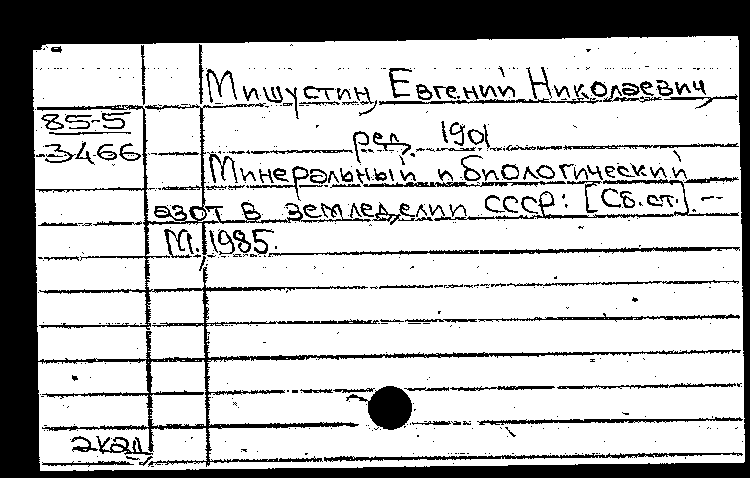 Мишустин, Евгений Николаевич,
85-5
3466
ред. 1901
Минеральный и биологический
азот в земледелии СССР: [Сб. ст.]. —
М., 1985.